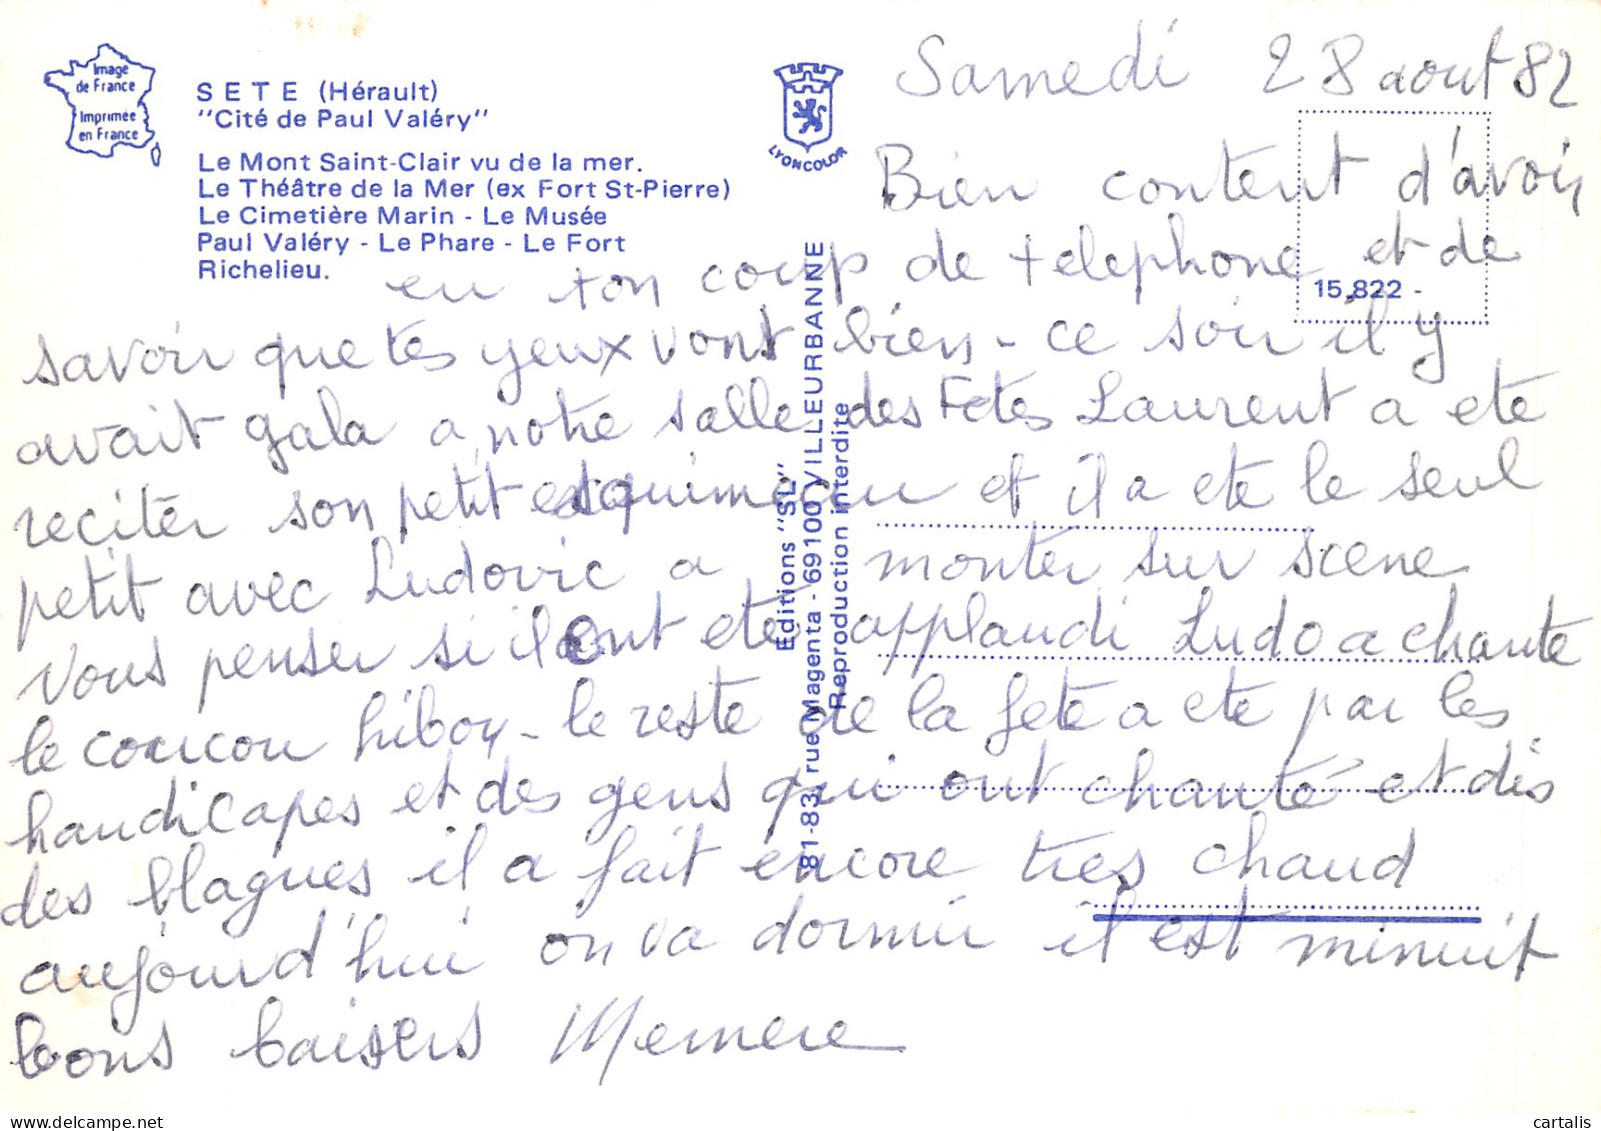 Image
de France
Imprimée
en France
SETE (Hérault)
"Cité de Paul Valéry"
Le Mont Saint-Clair vu de la mer.
Le Théâtre de la Mer (ex Fort St-Pierre)
Le Cimetière Marin - Le Musée
Paul Valéry - Le Phare - Le Fort
Richelieu.
LYONCOLOR
Editions "SL"
81-83, rue Magenta - 69100 VILLEURBANNE
Reproduction interdite
15.822 -
Samedi 28 aout 82
Bien content d'avoir
eu ton coup de telephone et de
savoir que tes yeux vont bien - ce soir il y
avait gala a notre salle des Fetes Laurent a ete
reciter son petit esquimeau et il a ete le seul
petit avec Ludovic a monter sur scene
vous penser si il ont ete applaudi Ludo a chante
le coucou hibou - le reste de la fete a ete par les
handicapes et des gens qui ont chanté et dis
des blagues il a fait encore tres chaud
aujourd'hui on va dormir il est minuit
bons baisers Memere
cartalis